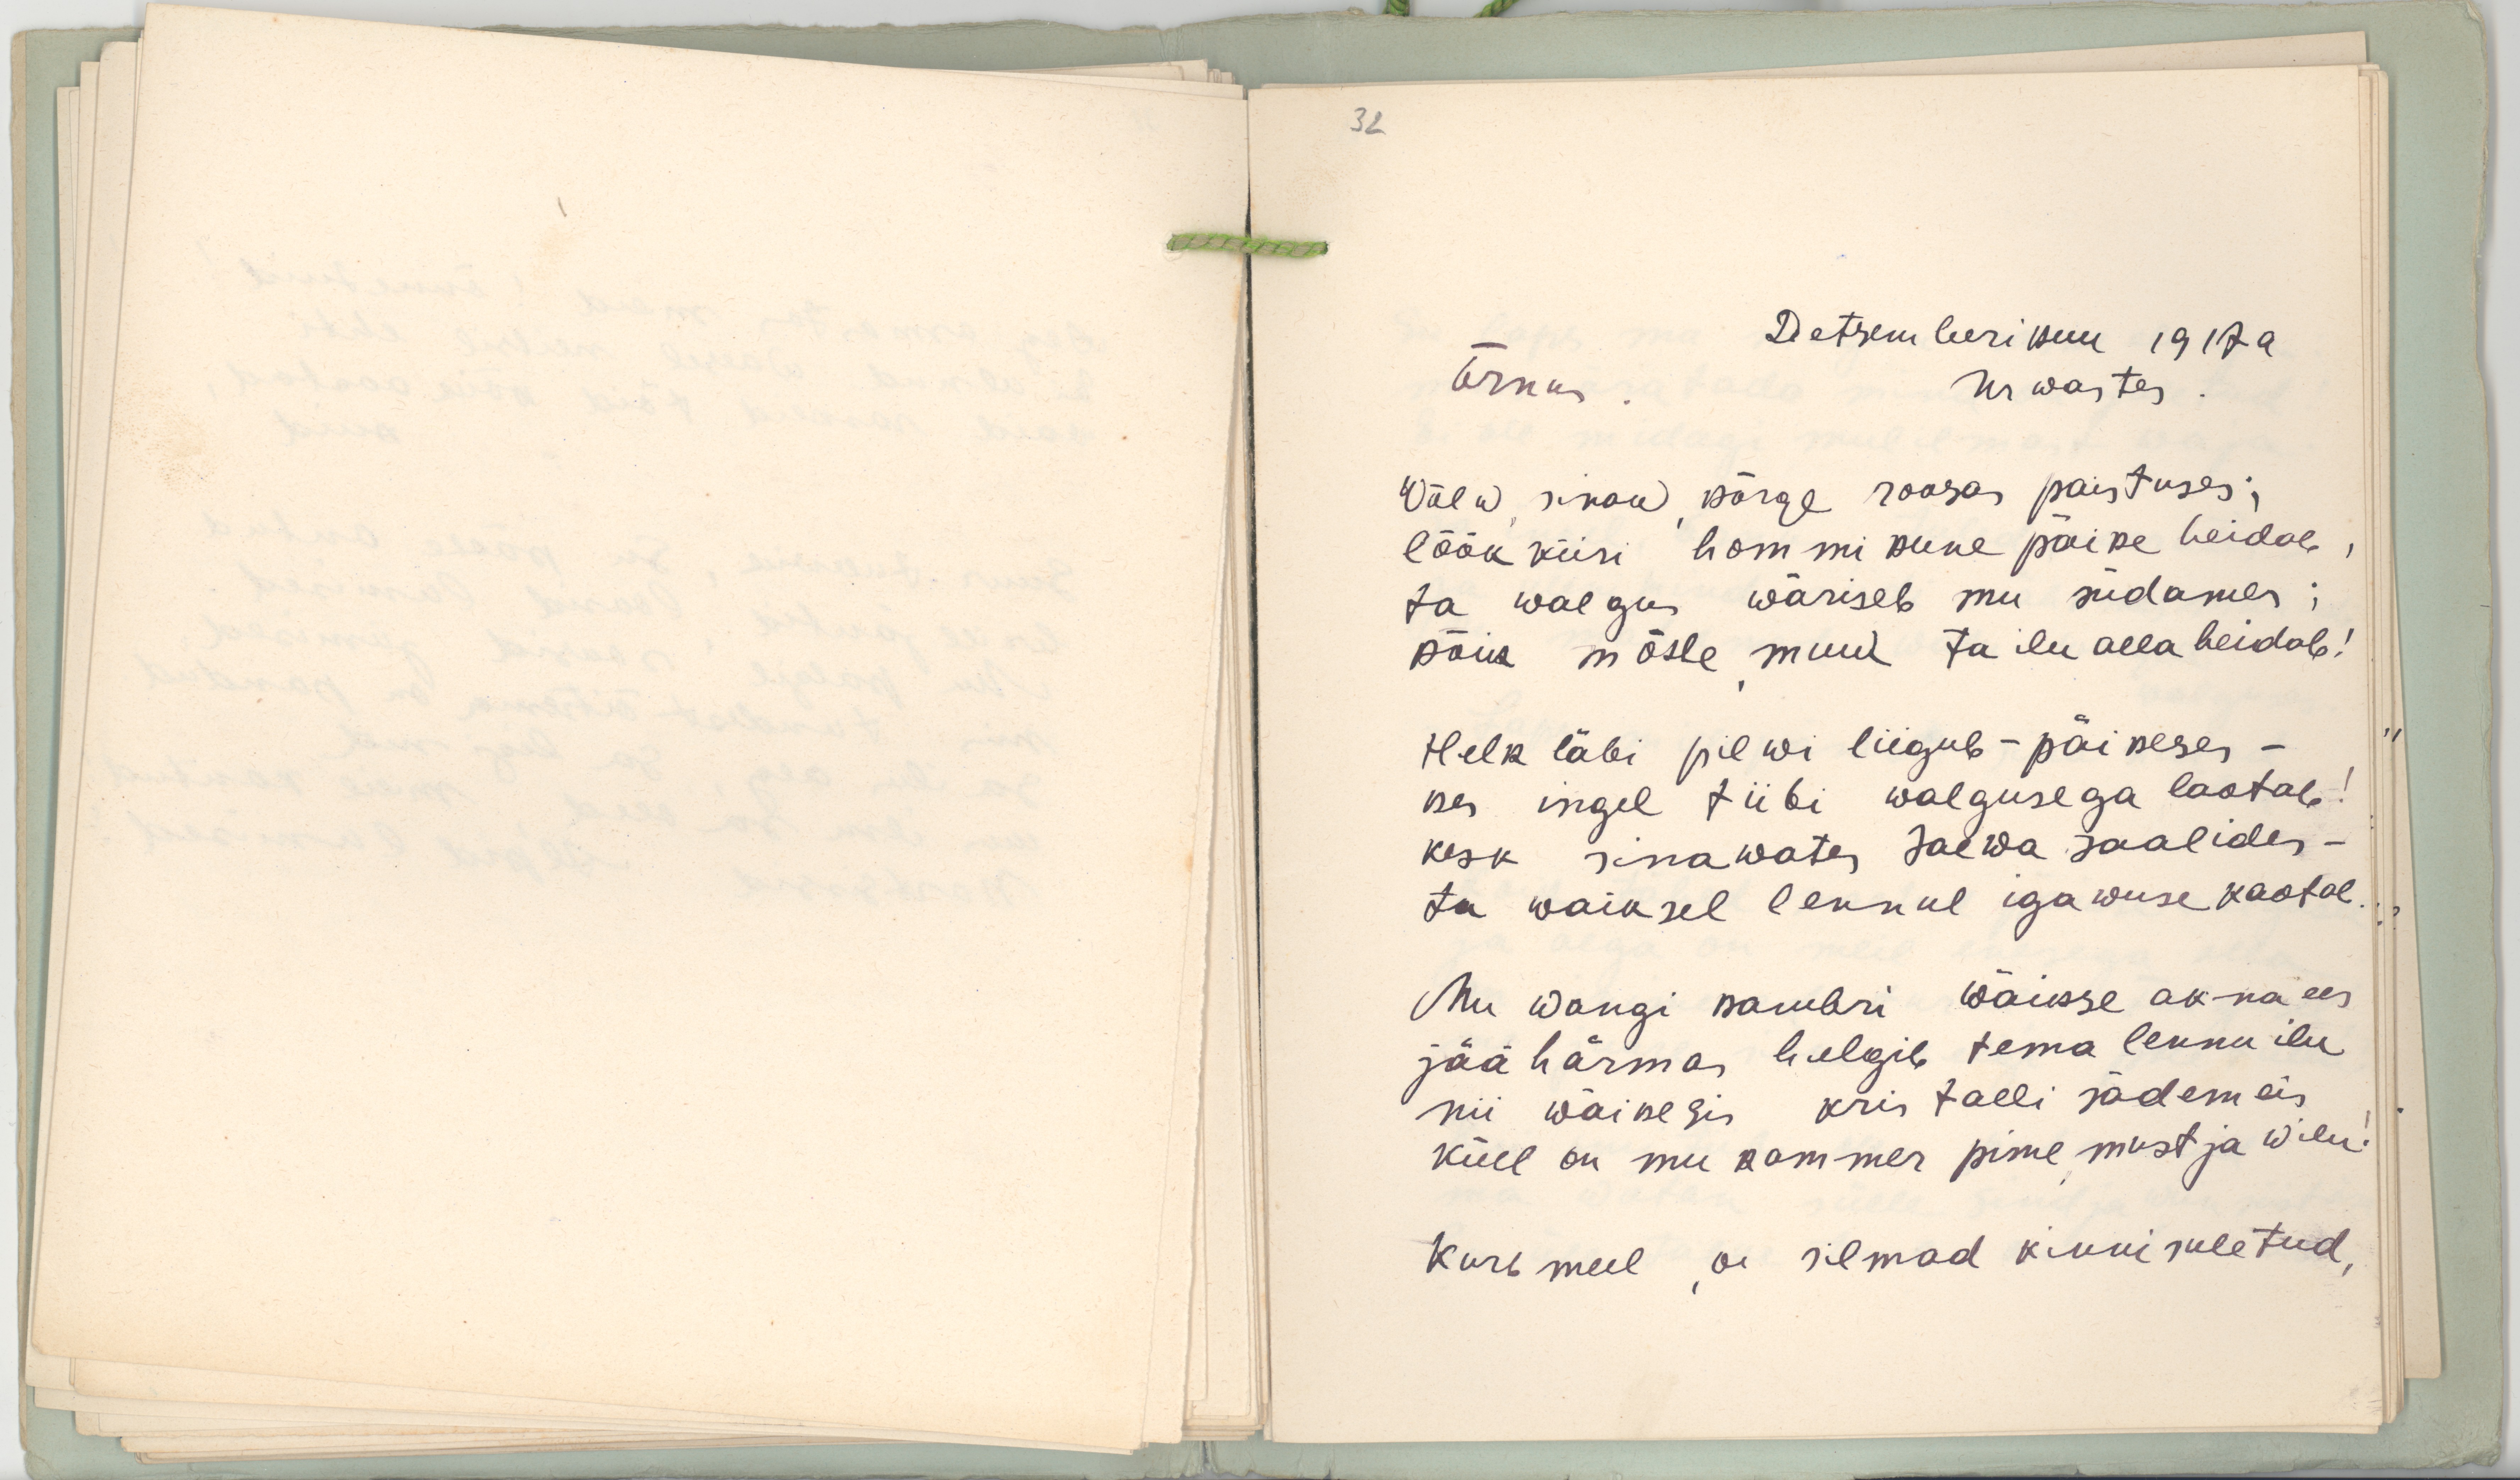 32
Detsemberikuu 1917 a
Õrnus. Urwastes.
Wõlw, sinaw, kõrge roosas paistuses;
lõõkkiiri hommikune päike heidab,
ta walgus wäriseb mu südames;
kõik mõtte, muud ta ilu alla heidab!
Helk läbi pilwi liigub - päikeses -
kes ingel tiibi walgusega laotab!
kesk sinawates taewa saalides -
ta waiksel lennul igawuse kaotab.
Mu wangi kambri wäikse akna ees
jäähärmas helgib tema lennu ilu
nii wäikesis kristalli sädemeis
küll on mu kammer pime, must ja wilu!
Kurb meel, on silmad kinni suletud,